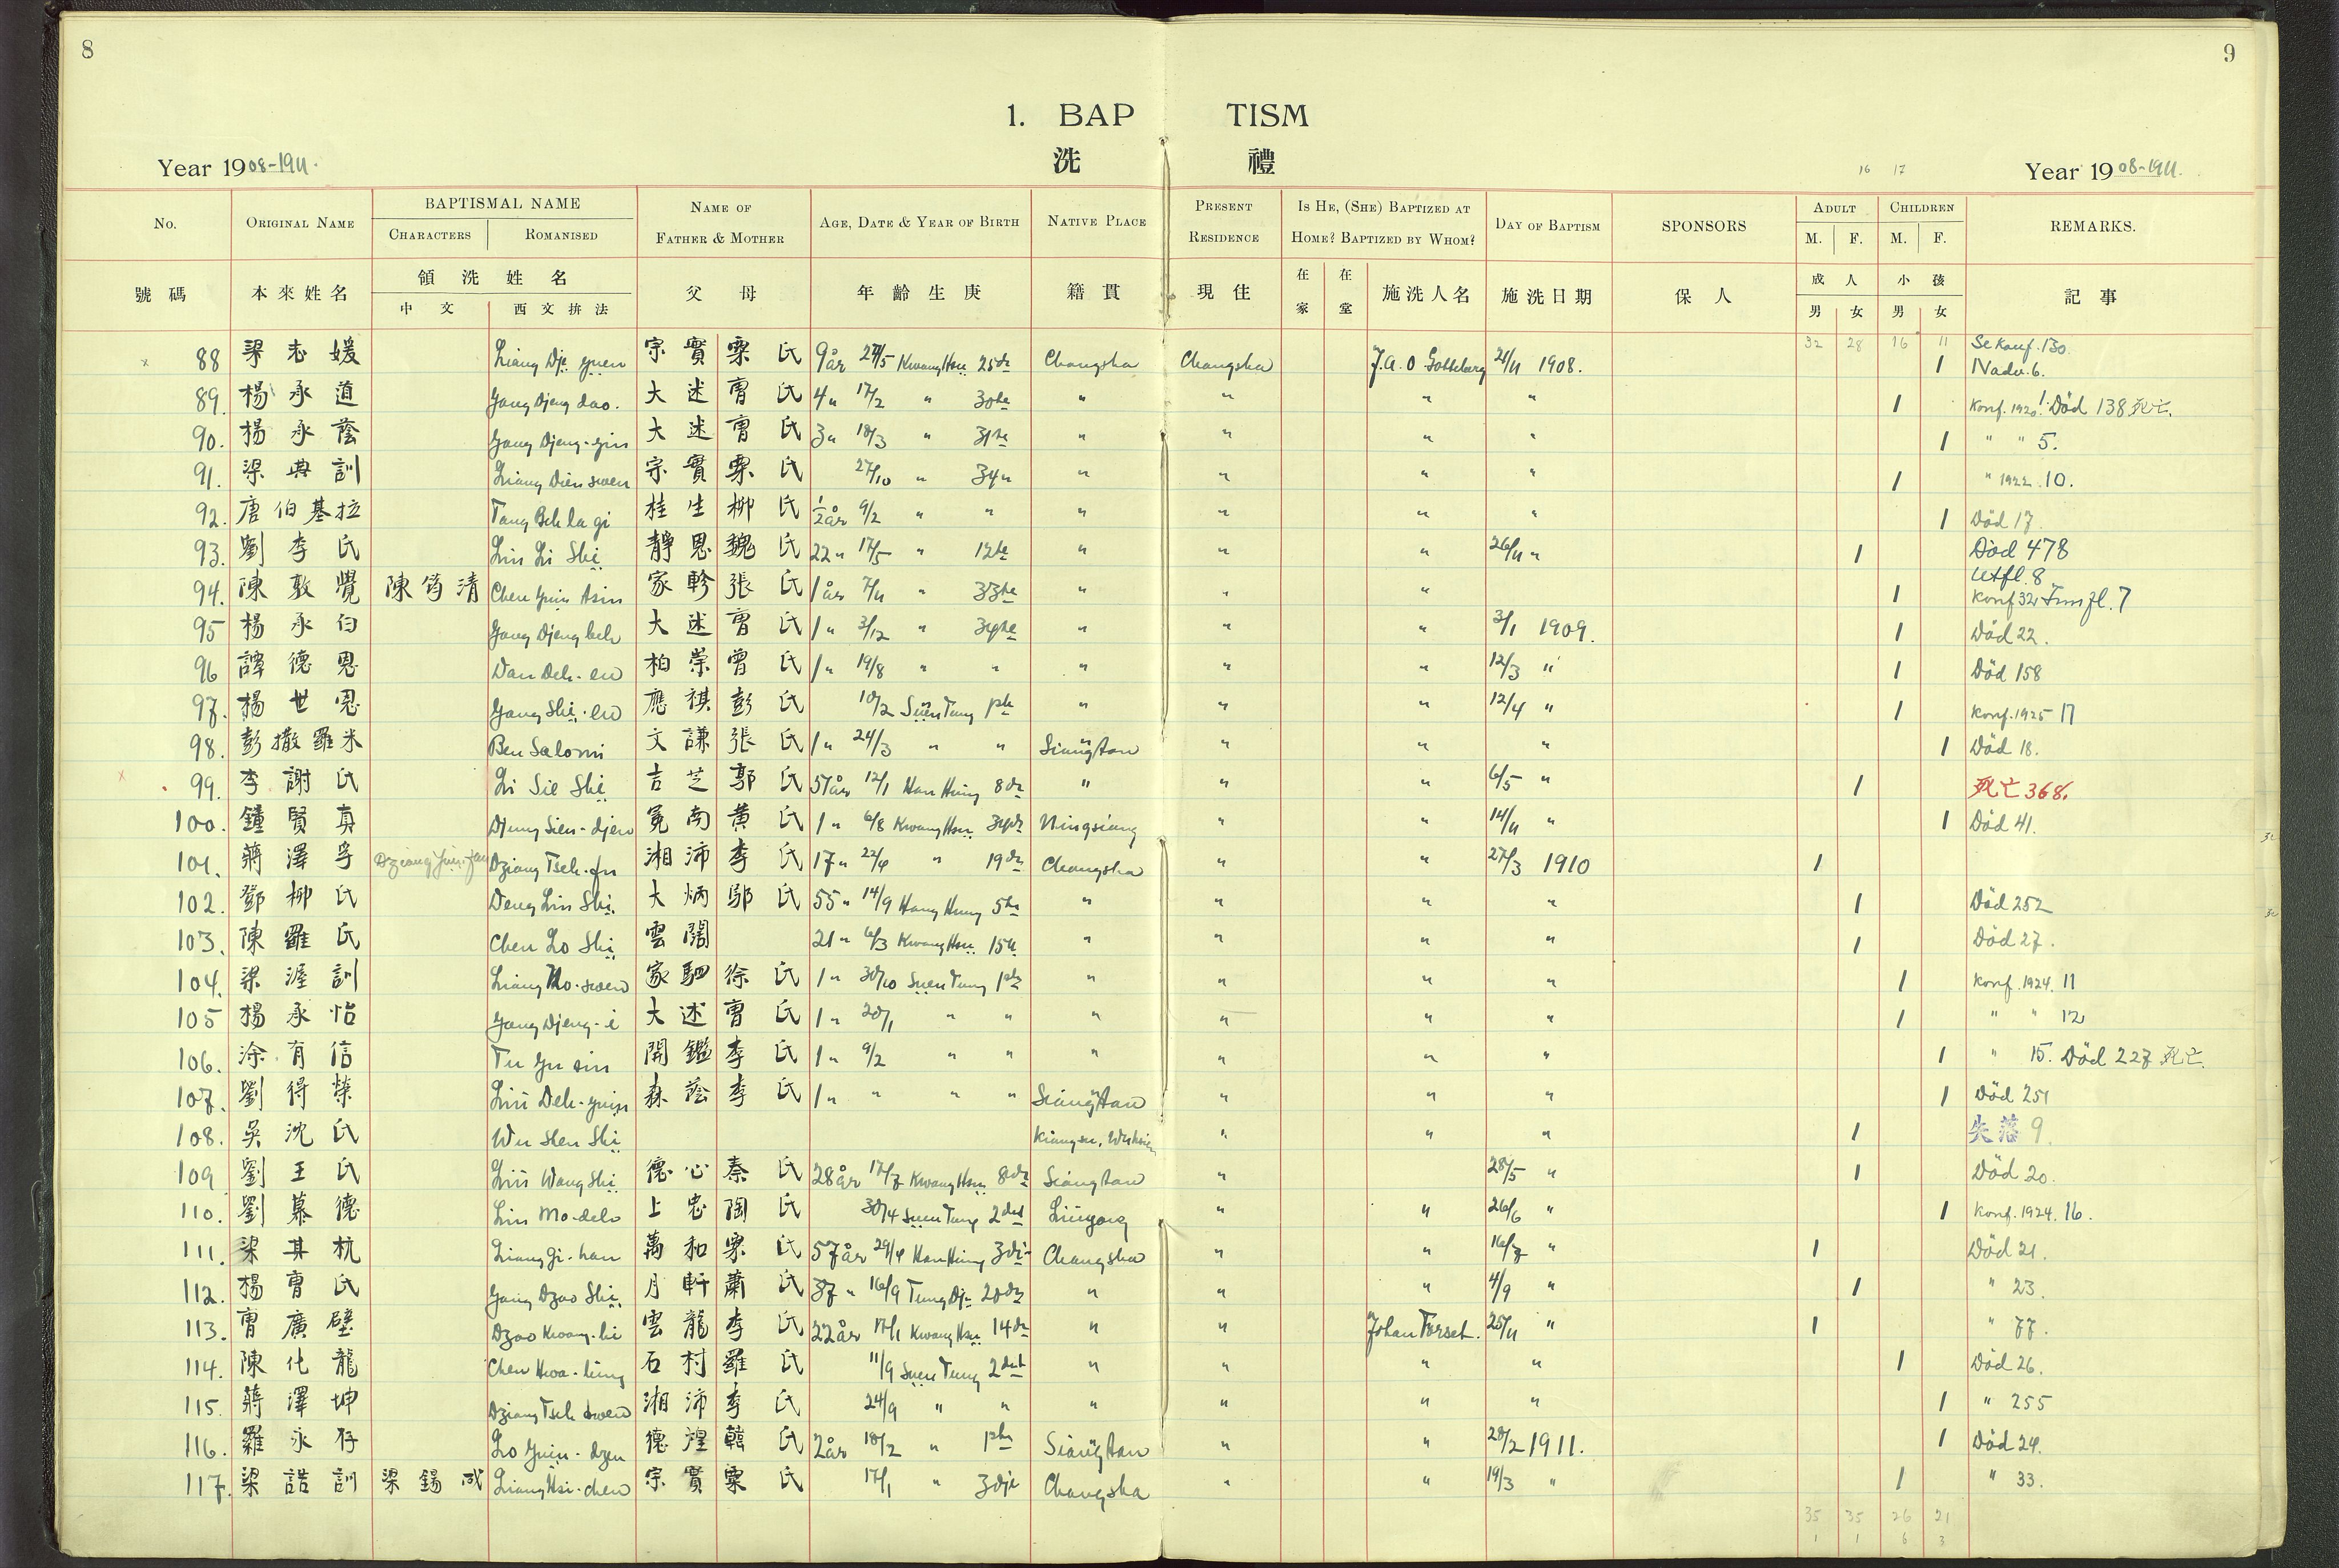 8
9
1. BAP TISM
洗 禮
Year 1908-1911.
16 17
Year 1908-1911.
No. ORIGINAL NAME BAPTISMAL NAME CHARACTERS ROMANISED NAME OF FATHER & MOTHER AGE, DATE & YEAR OF BIRTH NATIVE PLACE PRESENT RESIDENCE IS HE, (SHE) BAPTIZED AT HOME? BAPTIZED BY WHOM? DAY OF BAPTISM SPONSORS ADULT M. F. CHILDREN M. F. REMARKS.
號碼 本來姓名 領洗姓名 中文 西文拚法 父母 年齡生庚 籍貫 現住 在家 在堂 施洗人名 施洗日期 保人 成人 男 女 小孩 男 女 記事
32 28 16 11 Se Konf. 130
88 梁志媛 Liang Dji yuen 宗實 氏 9år 27/5 Kwang Hsu 25de Changsha Changsha J.A.O Gotteberg 21/11 1908. 1 Nadv. 6.
89. 楊承道 Yang Djeng dao. 大述曹氏 4 " 17/2 " 30te " " " " 1 Konf. 1920 1. Död 138 死亡.
90. 楊承蔭 Yang Djeng-yin 大述曹氏 3 " 18/3 " 31te " " " " 1 " " 5.
91. 梁典訓 Liang Dien swen 宗實 氏 27/10 " 34 " " " " " 1 " 1922. 10.
92. 唐伯基拉 Tang Beh la gi 桂生柳氏 1/2år 9/2 " " " " " " 1 Död 17.
93. 劉李氏 Liu Li Shi 靜恩魏氏 22 " 17/5 " 12te " " " 26/11 " 1 Död 478
94. 陳敦覺 陳筠清 Chen Yuin tsin 家軫張氏 1år 7/11 " 33te " " " 1 Utfl. 8 Konf 32 7
95 楊承伯 Yang Djeng beh 大述曹氏 1 " 3/12 " 34te " " " 3/1 1909. 1 Död 22.
96 譚德恩 Dan Deh-en 柏崇曾氏 1 " 19/8 " " " " " 12/3 " 1 Död 158
97. 楊世恩 Yang Shi-en 應祺彭氏 10/2 Süen Tung 1ste " " " 12/4 " 1 Konf. 1925 17
98. 彭撒羅米 Ben Salomi 文謙張氏 1 " 24/3 " " Siangtan " " " 1 Död 18.
99. 李謝氏 Li Sie Shi 吉芝鄒氏 51år 12/1 Han Hung 8de " " " 6/5 " 1 死亡 368.
100. 鐘賢真 Djung Sien-djen 冕南黃氏 1 " 6/8 Kwang Hsu 34de Ningsiang " " 14/11 " 1 Död 41.
101. 蔣澤孚 Dziang Tseh-fu 湘沛李氏 17 " 22/4 " 19de Changsha " " 27/3 1910 1
102. 鄧柳氏 Deng Liu Shi 大炳鄔氏 55 " 14/9 Hang Hung 5te " " " " 1 Död 252
103. 陳羅氏 Chen Lo Shi 雲闊 21 " 6/3 Kwang Hsu 15te " " " " 1 Död 27.
104. 梁渥訓 Liang Wo-swen 家駟徐氏 1 " 30/10 Suen Tung 1ste " " " " 1 Konf. 1924. 11
105 楊承怡 Yang Djeng-i 大述曹氏 1 " 20/1 " " " " " " 1 " " 12
106. 涂有信 Tu Yu sin 開鑑李氏 1 " 9/2 " " " " " " 1 " 15. Död 227 死亡.
107. 劉得榮 Liu Deh-yuin 森蔭李氏 1 " " " " Siangtan " " " 1 Död 251
108. 吳沈氏 Wu Shen Shi Kiangsu, Wuhsien " " " 1 失落 9.
109 劉王氏 Liu Wang Shi 德心秦氏 28år 17/7 Kwang Hsu 8de Siangtan " " 28/5 " 1 Död 20.
110. 劉慕德 Liu Mo-deh 上忠陶氏 30/4 Suen Tung 2det Liuyang " " 26/6 " 1 Konf. 1924. 16.
111. 梁其杭 Liang Gi-han 萬和 氏 57år 29/4 Han Hung 3dje Changsha " " 16/7 " 1 Död 21.
112. 楊曹氏 Yang Dzao Shi 月軒蕭氏 37 " 16/9 Tung Dji 20de " " " 4/9 " 1 " 23.
113. 曹廣壁 Dzao Kwang-bi 雲龍李氏 22år 17/1 Kwang Hsu 14de " " Johan Forseth. 25/11 " 1 " 77.
114. 陳化龍 Chen Hwa-lung 石村羅氏 11/9 Suen Tung 2det " " " " 1 Död 26.
115. 蔣澤坤 Dziang Tseh kwen 湘沛李氏 24/9 " " " " " " 1 " 255
116. 羅永存 Lo Yuin-dzen 德煌韓氏 2år 18/2 " 1ste Siangtan " " 28/2 1911. 1 Död 24.
117. 梁誥訓 梁錫成 Liang Hsi-chen 宗實 氏 17/1 " 3dje Changsha " " 19/3 " 1 " 33.
35 35 26 21
1 1 6 3